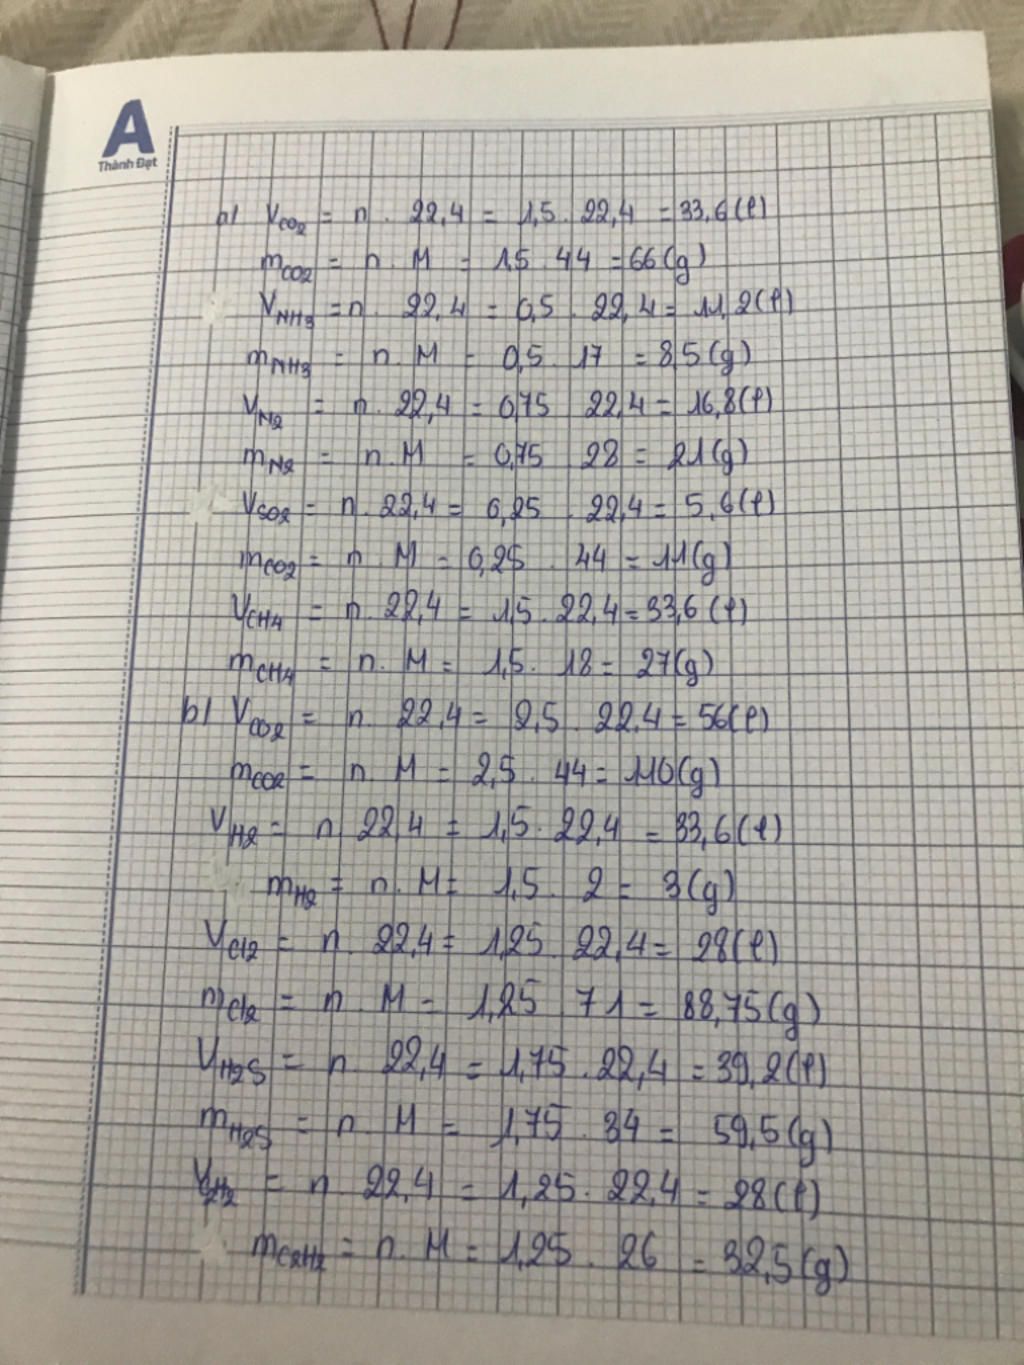 A
Thành Đạt
a/ V_CO2 = n . 22,4 = 1,5 . 22,4 = 33,6 (l)
m_CO2 = n . M = 1,5 . 44 = 66 (g)
V_NH3 = n . 22,4 = 0,5 . 22,4 = 11,2 (l)
m_NH3 = n . M = 0,5 . 17 = 8,5 (g)
V_N2 = n . 22,4 = 0,75 22,4 = 16,8 (l)
m_N2 = n . M = 0,75 28 = 21 (g)
V_SO2 = n . 22,4 = 0,25 . 22,4 = 5,6 (l)
m_CO2 = n . M = 0,25 . 44 = 11 (g)
V_CH4 = n . 22,4 = 1,5 . 22,4 = 33,6 (l)
m_CH4 = n . M = 1,5 . 18 = 27 (g)
b/ V_CO2 = n . 22,4 = 2,5 . 22,4 = 56 (l)
m_CO2 = n M = 2,5 . 44 = 110 (g)
V_H2 = n 22,4 = 1,5 . 22,4 = 33,6 (l)
m_H2 = n . M = 1,5 . 2 = 3 (g)
V_Cl2 = n . 22,4 = 1,25 . 22,4 = 28 (l)
m_Cl2 = n . M = 1,25 71 = 88,75 (g)
V_H2S = n . 22,4 = 1,75 . 22,4 = 39,2 (l)
m_H2S = n . M = 1,75 . 34 = 59,5 (g)
= n 22,4 = 1,25 . 22,4 = 28 (l)
m_C2H2 = n . M = 1,25 . 26 = 32,5 (g)